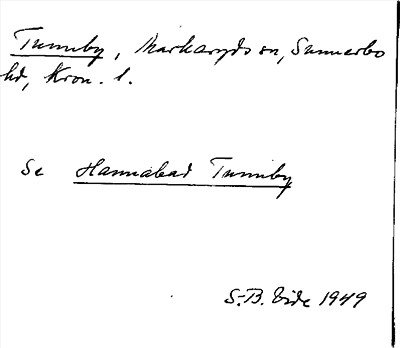 Tunnby, Markaryds sn, Sunnerbo
hd, Kron. l.
Se Hannabad Tunnby
S.-B. Vide 1949